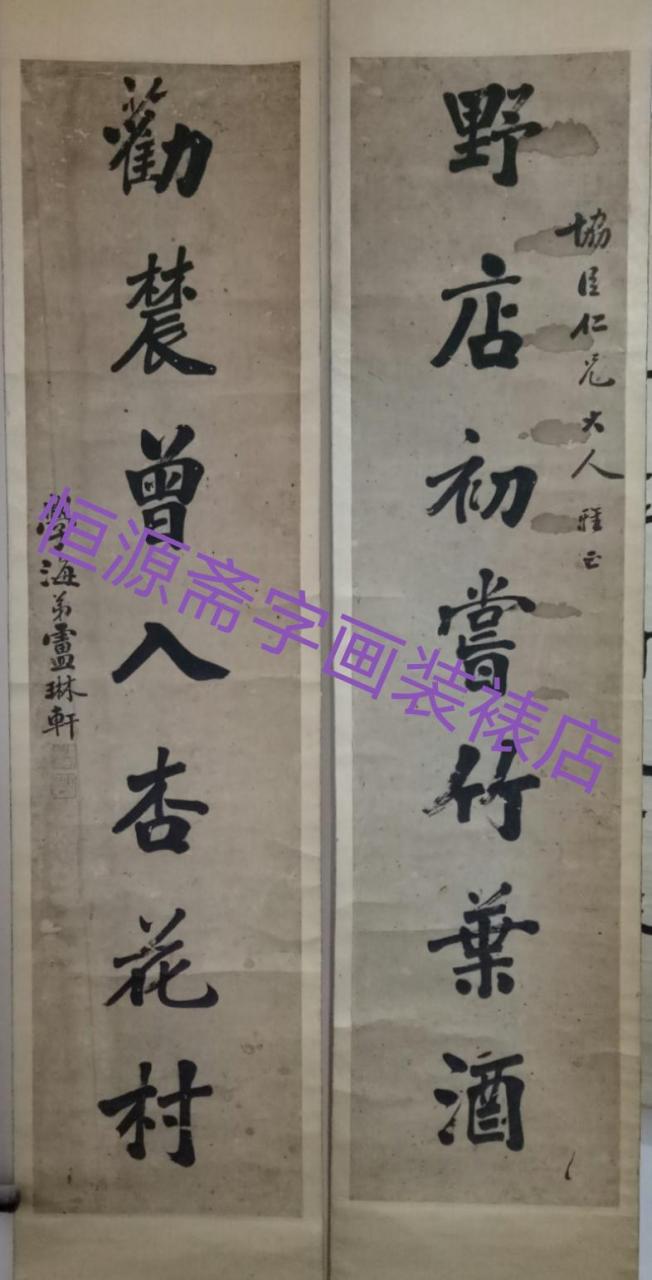 協臣仁兄大人 雅正
野店初嘗竹葉酒
勸辳曾入杏花村
學海弟琳軒
恒源斋字画装裱店